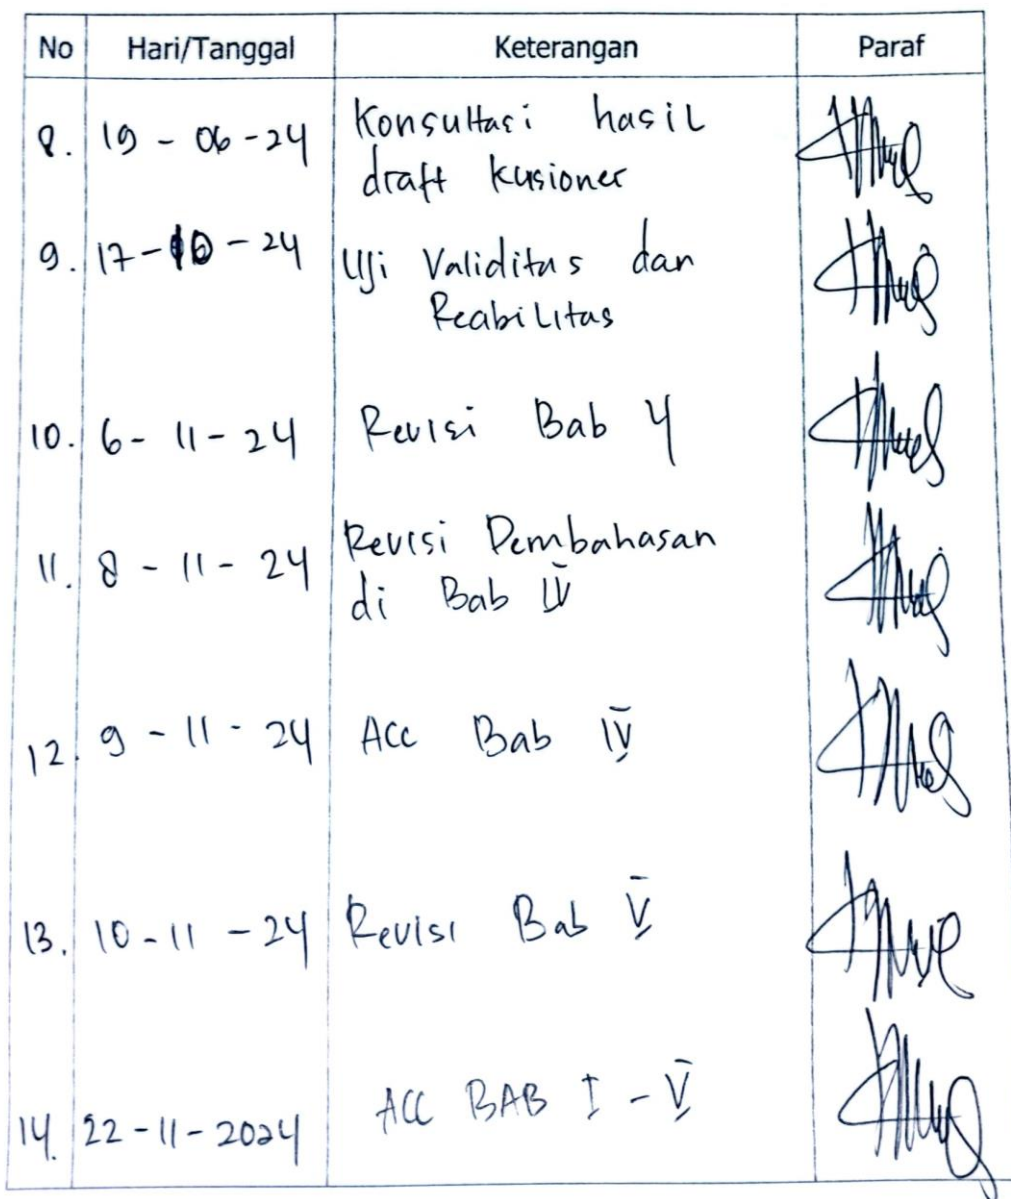 No Hari/Tanggal Keterangan Paraf
8. 19 - 06 - 24 Konsultasi hasil
draft kusioner
9. 17 - 10 - 24 Uji Validitas dan
Reabilitas
10. 6 - 11 - 24 Revisi Bab 4
11. 8 - 11 - 24 Revisi Pembahasan
di Bab IV
12. 9 - 11 - 24 Acc Bab IV
13. 10 - 11 - 24 Revisi Bab V
14. 22 - 11 - 2024 ACC BAB I - V